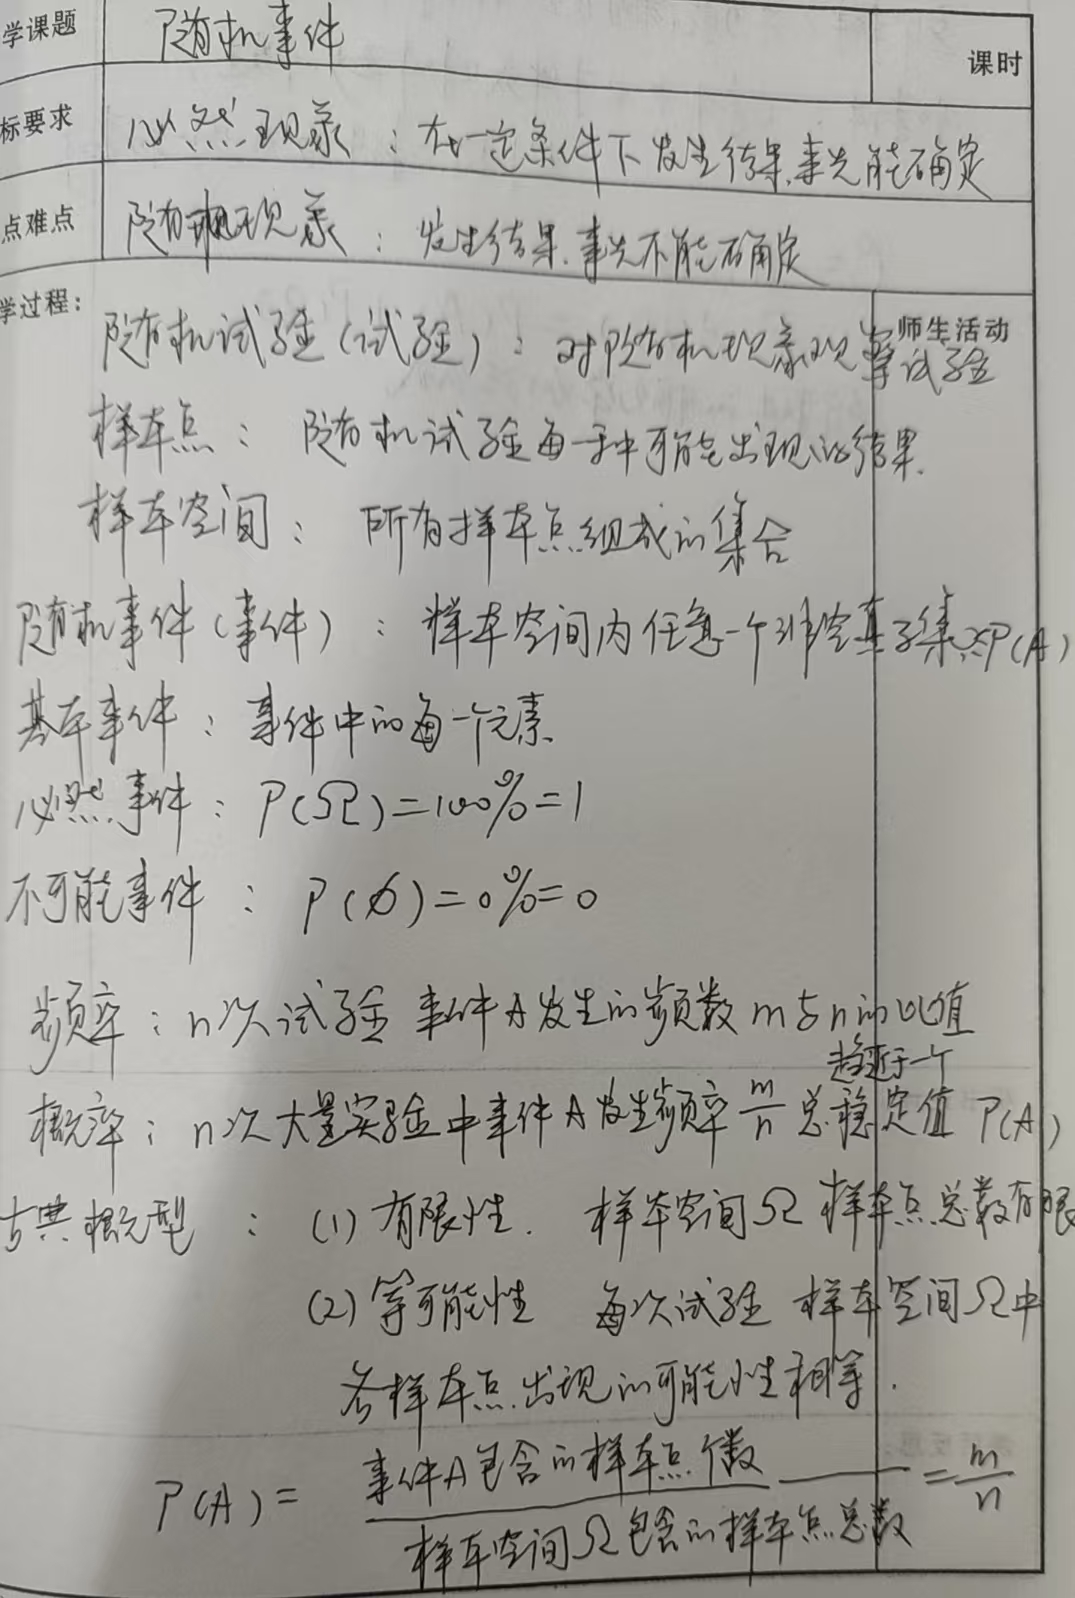 学课题 随机事件 课时
标要求 必然现象：在一定条件下发生结果.事先能确定
点难点 随机现象：发生结果.事先不能确定
学过程： 师生活动
随机试验(试验)：对随机现象观察试验
样本点：随机试验每一种可能出现的结果.
样本空间：所有样本点组成的集合
随机事件(事件)：样本空间内任意一个非空真子集 P(A)
基本事件：事件中的每一个元素
必然事件：P(Ω)=100%=1
不可能事件：P(∅)=0%=0
频率：n次试验 事件A发生的频数m与n的比值
趋近于一个
概率：n次大量实验中事件A发生频率 m/n 总稳定值 P(A)
古典概型：(1)有限性. 样本空间Ω样本点总数有限
(2)等可能性 每次试验 样本空间Ω中
各样本点出现的可能性相等.
P(A)= 事件A包含的样本点个数 = m/n
样本空间Ω包含的样本点总数